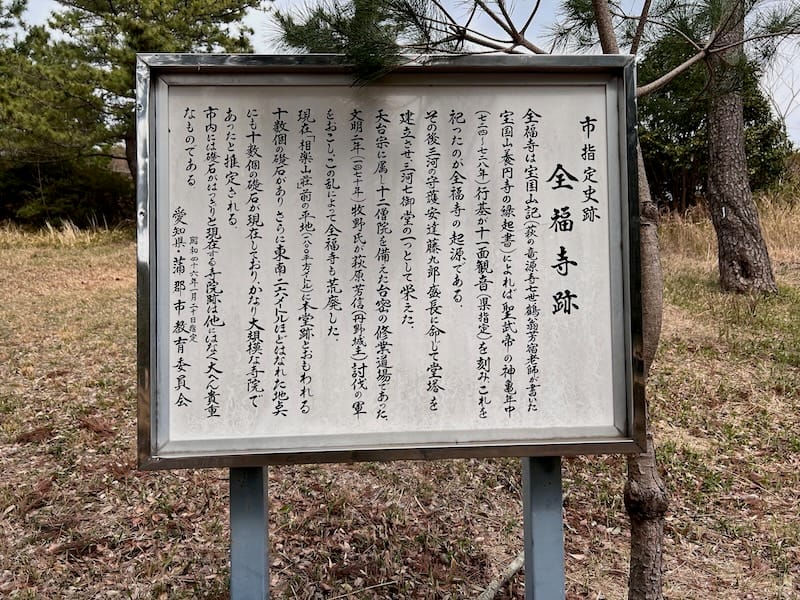 市指定史跡
全福寺跡
全福寺は宝国山記(萩の竜源寺七世鶴翁芳宿老師が書いた
宝国山養円寺の縁起書)によれば聖武帝の神亀年中
(七二四〜七二八年)行基が十一面観音(県指定)を刻みこれを
祀ったのが全福寺の起源である。
その後三河の守護安達藤九郎盛長に命して堂塔を
建立させ三河七御堂の一つとして栄えた。
天台宗に属し十二僧院を備えた台密の修業道場であった。
文明二年(一四七十年)牧野氏が萩原芳信(丹野城主)討伐の軍
をおこしこの乱によって全福寺も荒廃した。
現在「相楽山荘前の平地(八〇〇平方メートル)に本堂跡とおもわれる
十数個の礎石がありさらに東南二六メートルほどはなれた地点
にも十数個の礎石が現在しておりかなり大規模な寺院で
あったと推定される
市内には礎石がはっきりと現在する寺院跡は他にはなく大へん貴重
なものである
昭和四十六年一月二十日指定
愛知県・蒲郡市教育委員会